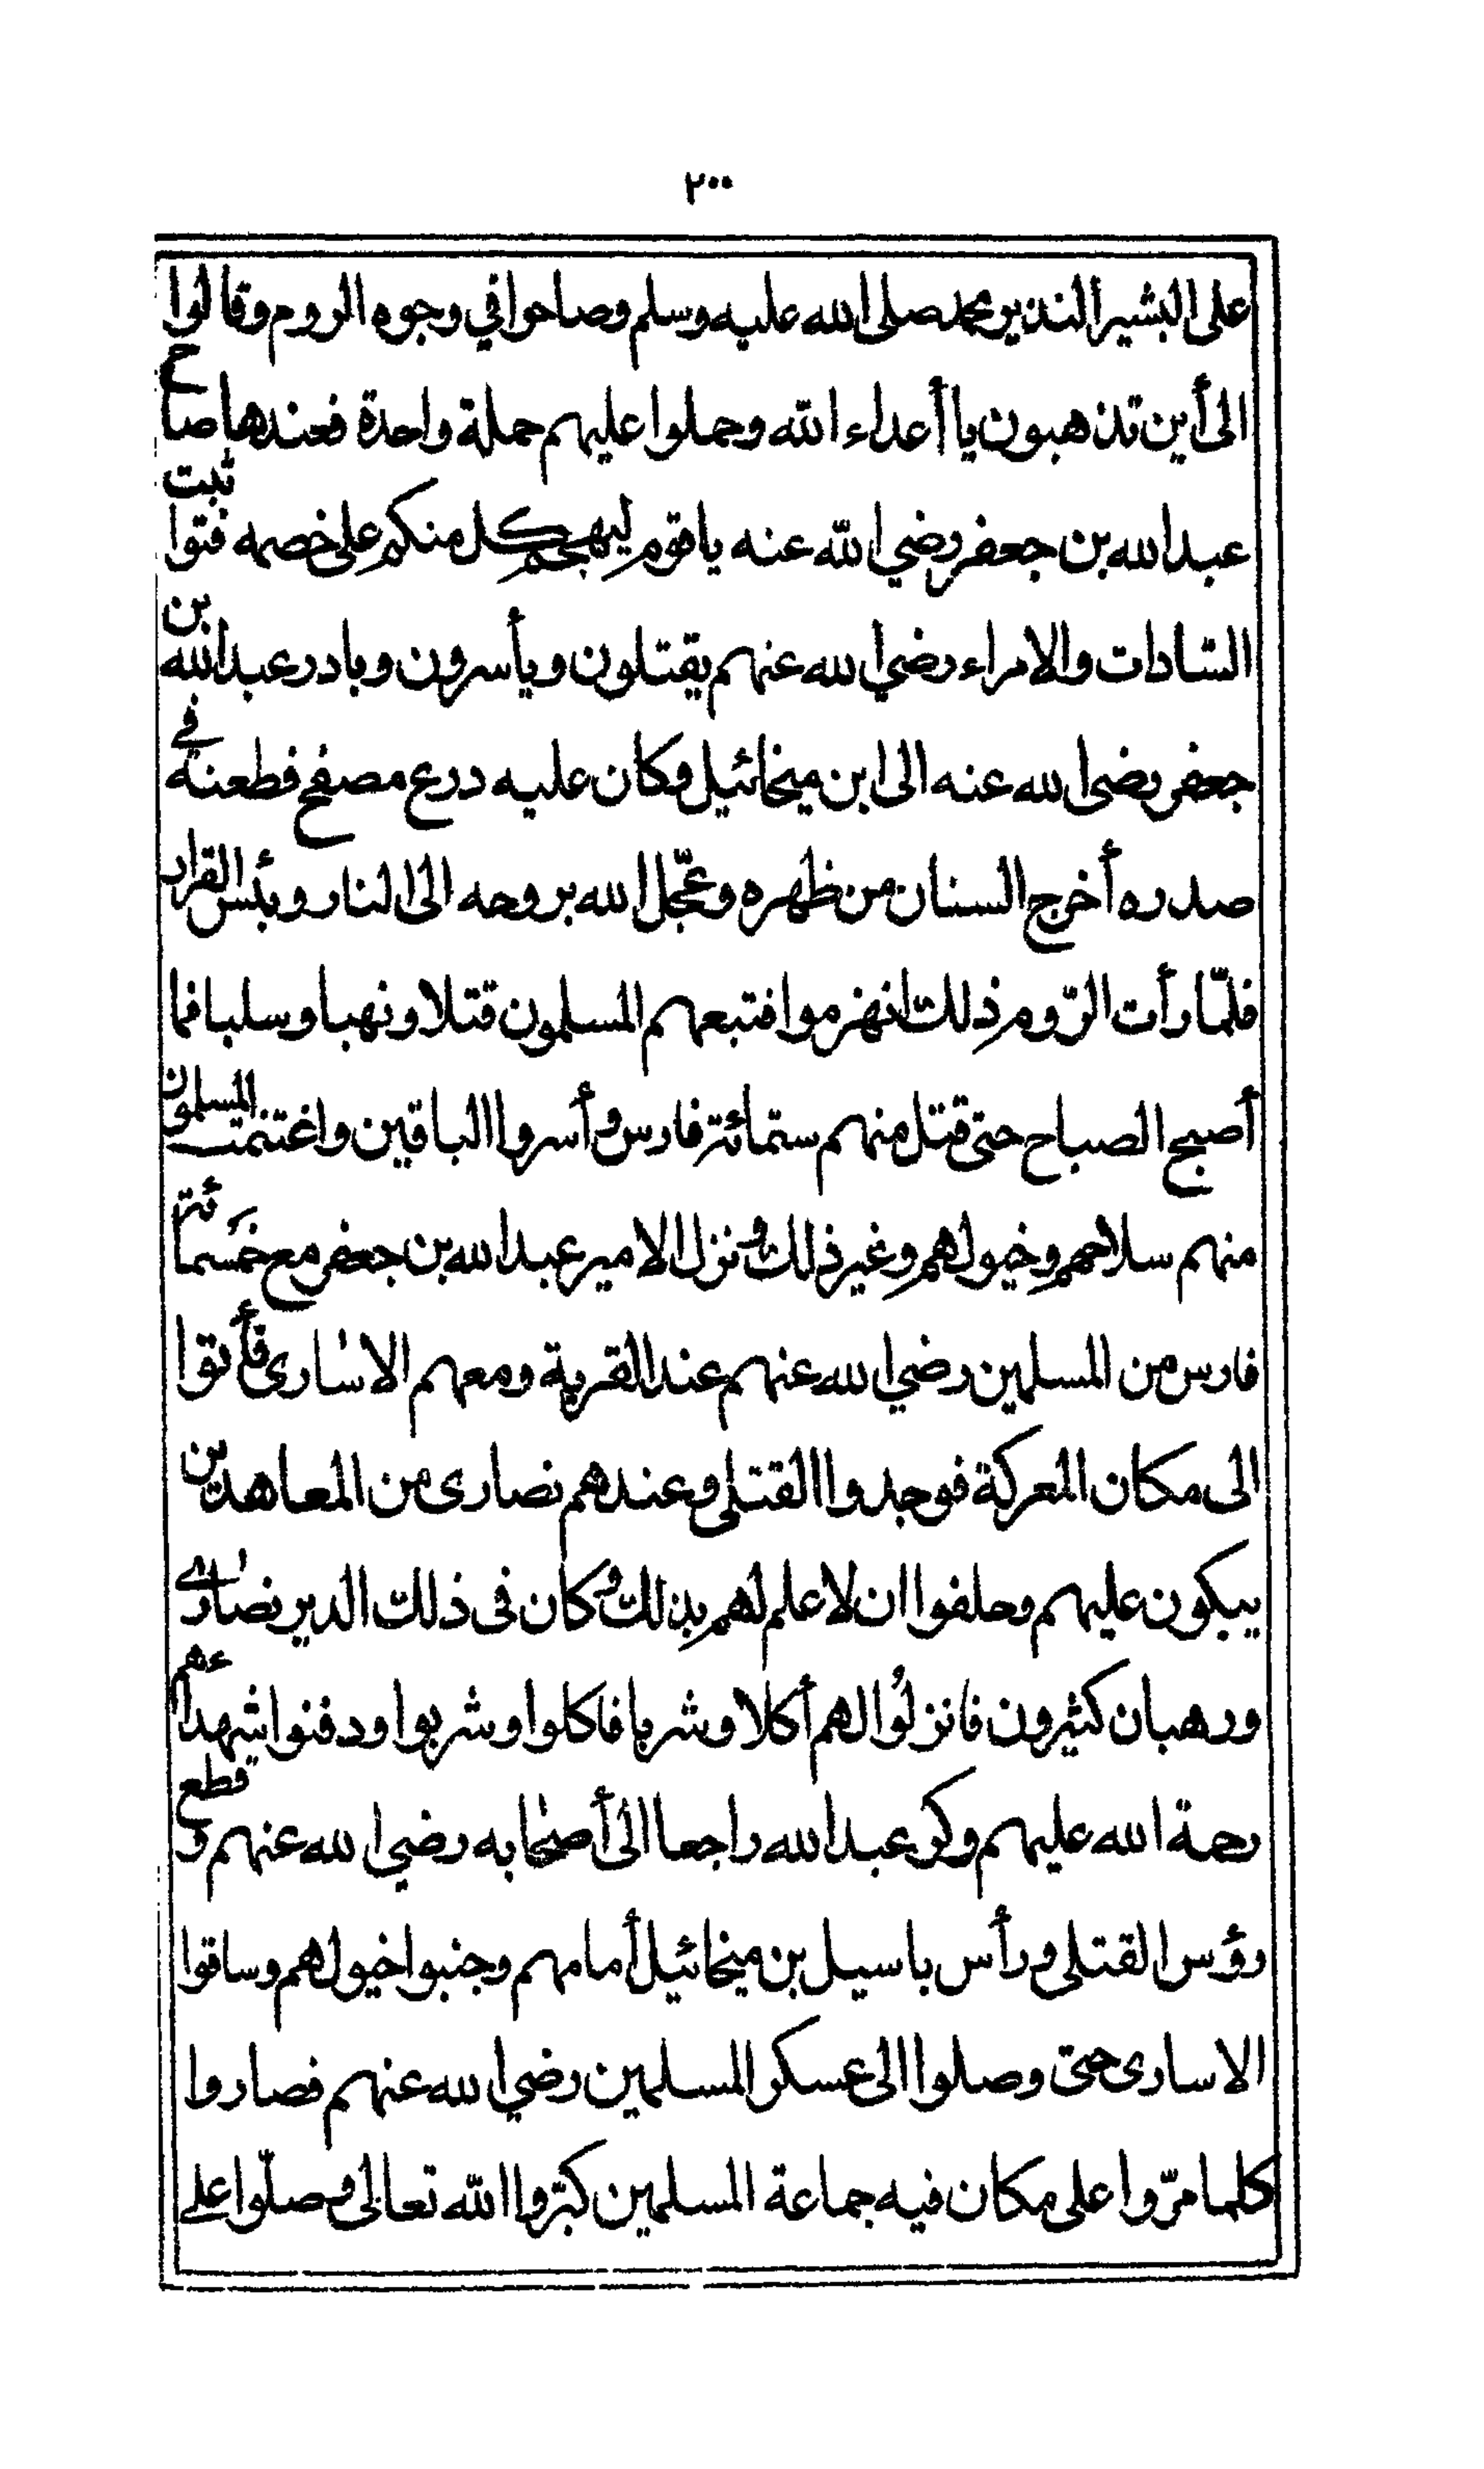 ٢٠٠
على البشير النذير محمد صلى الله عليه وسلم وصاحوا في وجوه الروم وقالوا
الى أين تذهبون يا أعداء الله وحملوا عليهم حملة واحدة فعندها صاح
عبد الله بن جعفر رضي الله عنه يا قوم ليهجم كل منكم على خصمه فتواثبت
السّادات والامراء رضي الله عنهم يقتلون ويأسرون وبادر عبد الله بن
جعفر رضى الله عنه الى ابن ميخائيل وكان عليه درع مصفح فطعنه في
صدره أخرج السنان من ظهره وعجّل الله بروحه الى النار وبئس القرار
فلمّا رأت الرّوم ذلك انهزموا فتبعهم المسلمون قتلا ونهبا وسلبا فما
أصبح الصباح حتى قتل منهم ستمائة فارس وأسروا الباقين واغتنمت المسلمون
منهم سلاحهم وخيولهم وغير ذلك ونزل الامير عبد الله بن جعفر مع خمسمائة
فارس من المسلمين رضي الله عنهم عند القرية ومعهم الاسارى فأتوا
الى مكان المعركة فوجدوا القتلى وعندهم نصارى من المعاهدين
يبكون عليهم وحلفوا ان لا علم لهم بذلك وكان فى ذلك الدير نصارى
ورهبان كثيرون فانزلُوا لهم أكلا وشربا فاكلوا وشربوا ودفنوا شهداءهم
رحمة الله عليهم وكر عبد الله راجعا الى أصحابه رضي الله عنهم وقطع
رؤس القتلى ورأس باسيل بن ميخائيل أمامهم وجنبوا خيولهم وساقوا
الاسارى حتى وصلوا الى عسكر المسلمين رضي الله عنهم فصاروا
كلما مرّوا على مكان فيه جماعة المسلمين كبّروا الله تعالى وصلّوا على